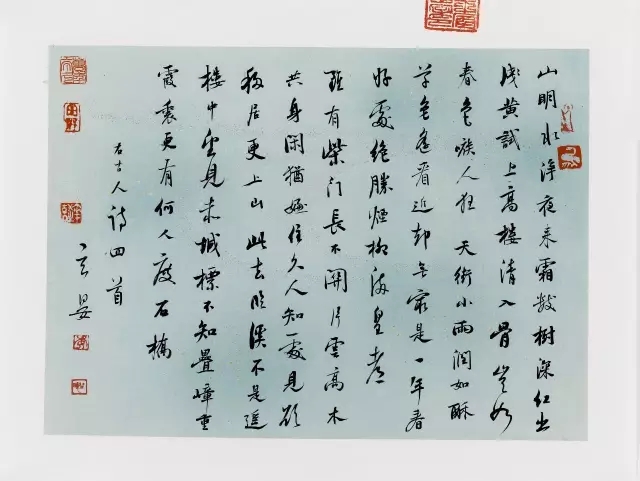 山明水浄夜来霜數树深红出
浅黄試上高樓清入骨豈如
春色嗾人狂天街小雨潤如酥
草色遥看近却無最是一年春
好處絶勝煙柳滿皇都
雖有柴门長不開片雲高木
共身闲猶嫌住久人知處見欲
移居更上山此去臨溪不是遥
樓中望見赤城標不知疊嶂重
霞裏更有何人度石橋
右古人詩四首